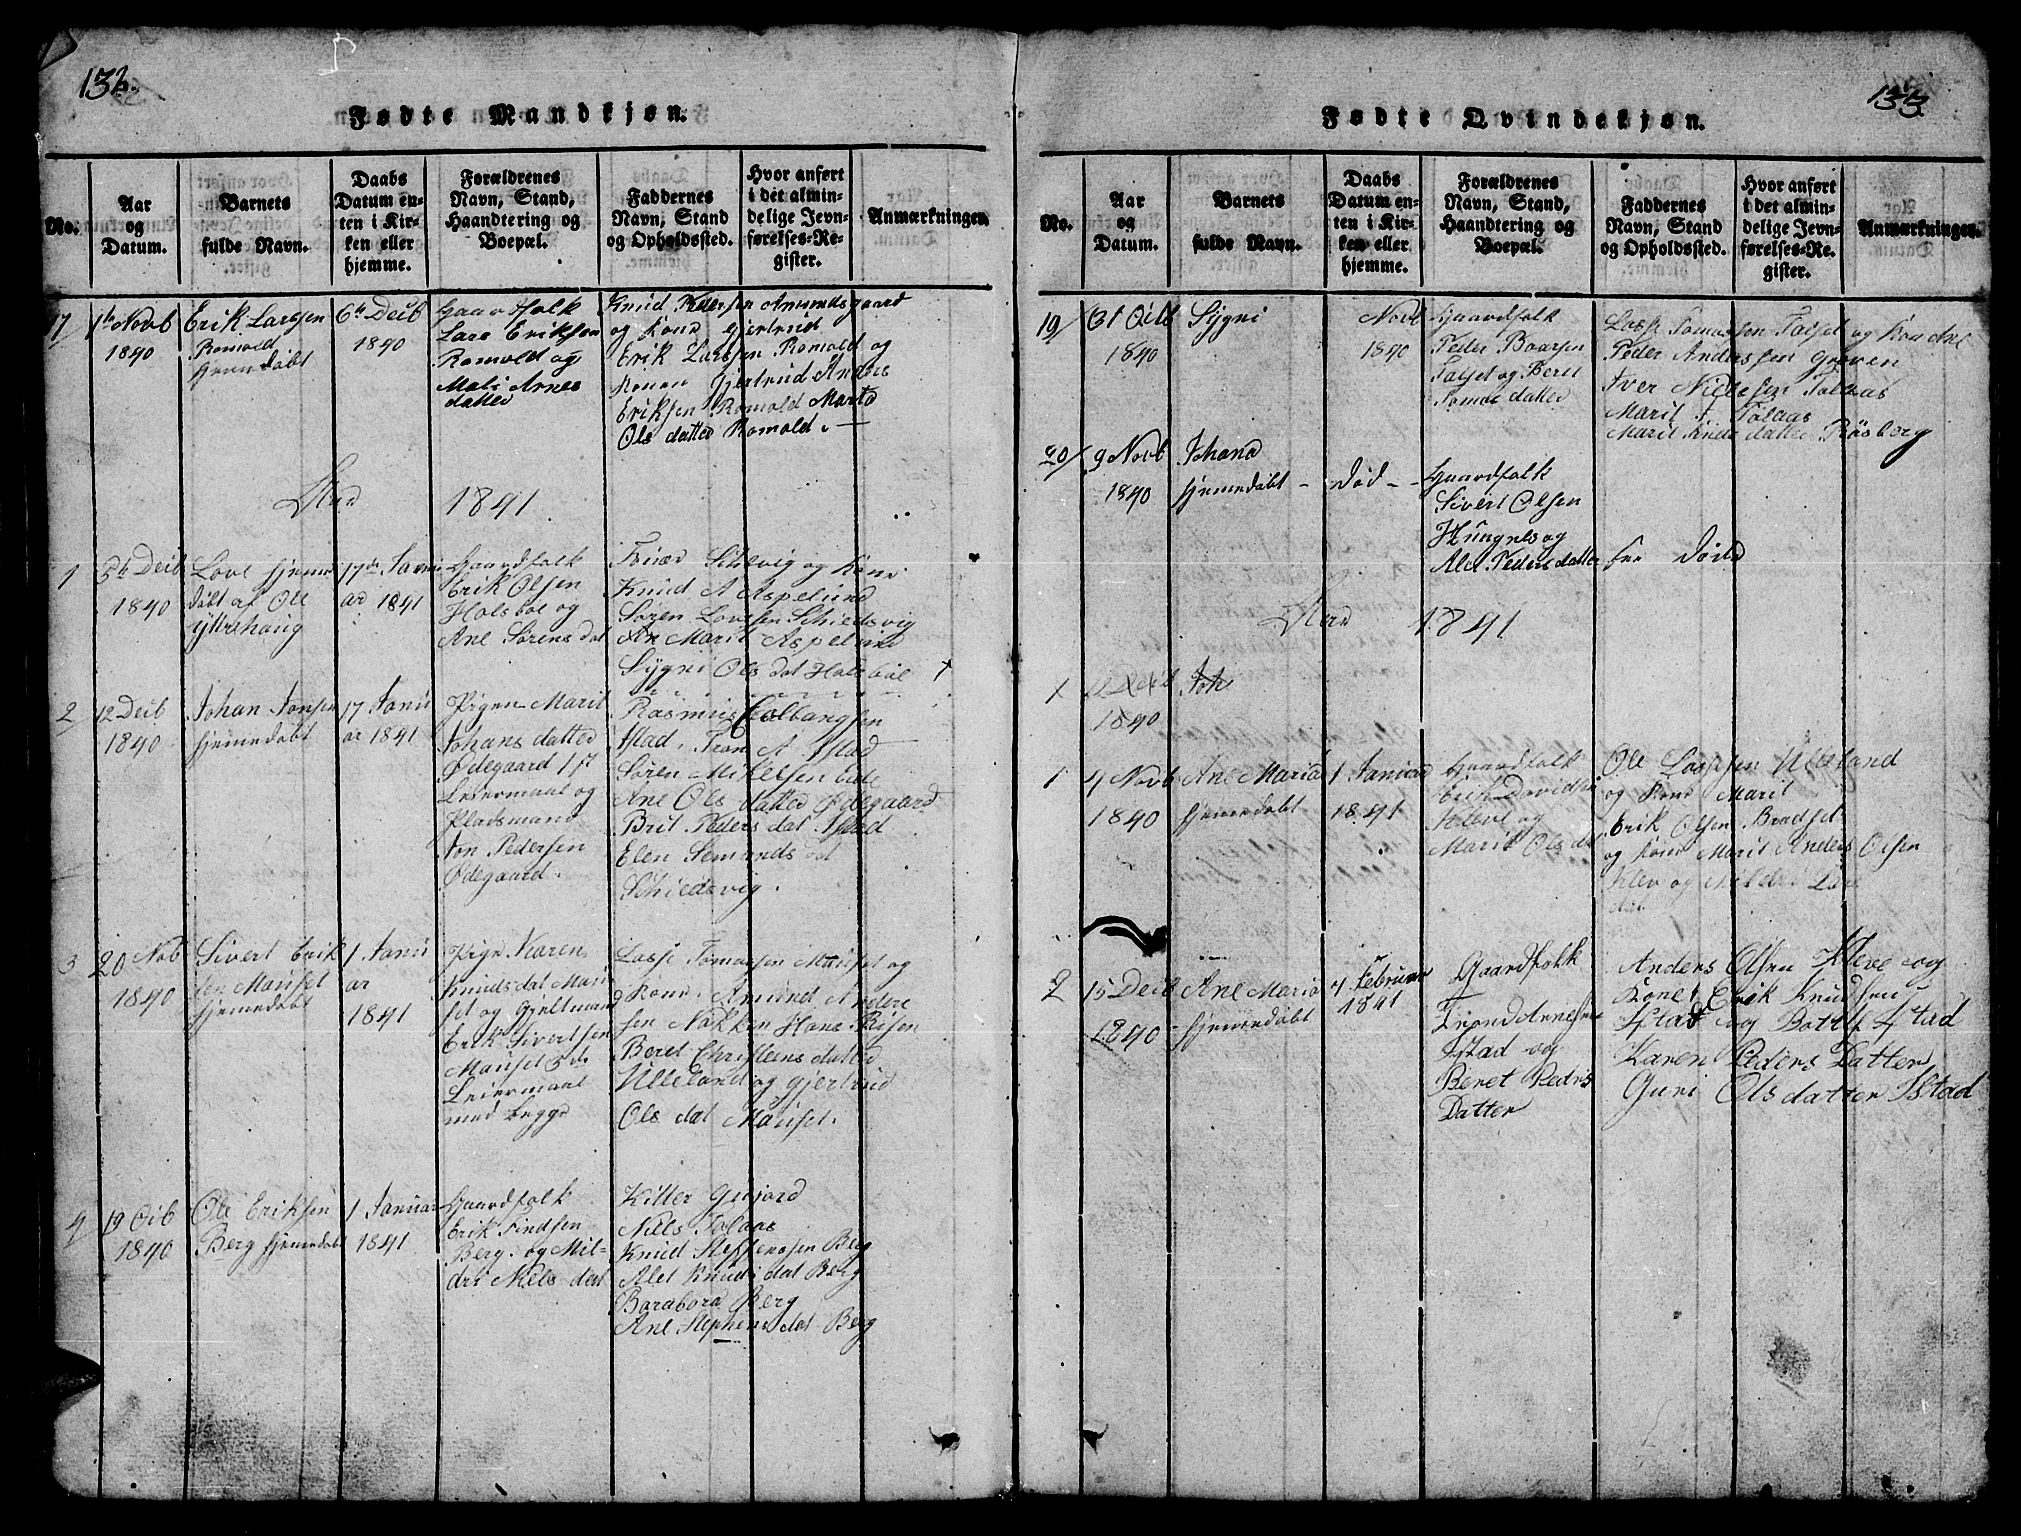 132.
Fødte Mandkjøn.
No.
Aar
og
Datum.
Barnets
fulde Navn.
Daabs
Datum en-
ten i Kir-
ken eller
hjemme.
Forældrenes
Navn, Stand,
Haandtering og
Boepæl.
Faddernes
Navn, Stand
og Opholdssted.
Hvor anført
i det almin-
delige Jevn-
førelses-Re-
gister.
Anmærkninger.
17
1te Novb
1840
Erik Larssen
Romold
hjemedøbt
6te Decb
1840
Gaardfolk
Lars Eriksen
Romold og
Mali Arnes
datter
Knud Pedersen Amundsgaard
og Kona Gjertrud
Erik Larssen Romold og
Konen Gjertrud Anders
Eriksen Romold Marta
Ols datter Romold. —
Aar 1841
1
5te Decb
1840
Love hjeme
døbt af Ole
Yttrehaug
17de Janu
ar 1841
Gaardfolk
Erik Olsen
Halsboe og
Ane Sørens dat
Schevig og Kone
Knud A Aspelund
Søren Lovsen Schiedsvig
An Marit Aspelund
Sygni Ols dat Halsboe
2
12 Decb
1840
Johan Jonsen
hjemedøbt
17 Janu
ar 1841
Pigen Marit
Johans datter
Ødegaard 1st
Leiermaal og
Pladsmand
Jon Pedersen
Ødegaard.
Rasmus Colbangsen
Istad. Tron A Istad
Søren Mikelsen
Ane Ols datter Ødegaard
Brit Peders dat Istad
Elen Semunds dat
Schiedsvig.
3
20 Nob
1840
Sivert Erik
sen Mauset
hjemedøbt
1 Janu
ar
1841
Pige Karen
Knudsdat Mau
set og Gjeltmand
Erik Sivertsen
Mauset 3de
Leiermaal
med begge
Lasse Tomassen Mauset og
Kone. Amund Andre
sen Nakken Hans Risen
Beret Christens datter
Ulleland og Gjertrud
Ols dat Mauset.
4
19 Ocb
1840
Ole Eriksen
Berg hjemedøbt
1 Januar
1841
Gaardfolk
Erik Findsen
Berg. og Mil-
dri Niels dat
Kitter Gujord
Niels Tolaas
Knud Steffensen Berg
Alet Knuds dat Berg
Barabora Berg
Ane Stephens dat Berg
133
Fødte Qvindekjøn.
No.
Aar
og
Datum.
Barnets
fulde Navn.
Daabs
Datum en-
ten i Kir-
ken eller
hjemme.
Forældrenes
Navn, Stand,
Haandtering og
Boepæl.
Faddernes
Navn, Stand
og Opholdssted.
Hvor anført
i det almin-
delige Jevn-
førelses-Re-
gister.
Anmærkninger.
19
31 Octb
1840
Sygni
Novb
1840
Gaardfolk
Peder Baarsen
Talset og Beret
Tomas datter
Lasse Tomassen Talset og Kona Ane
Peder Anderssen Greven
Iver Nielssen Tolaas
Marit I. Tolaas
Marit Knds datter Røsberg
20
9 Novb
1840
Johana
hjemedøbt -
død -
Gaardfolk
Sivert Olsen
Hungnes og
Ale Peders datter
see døde
Aar 1841
1
1840
Joh
1
4 Novb
1840
Ane Maria
hjemedøbt
1 Januar
1841
Gaardfolk
Erik Davidsen
Kleve og
Marit Ols dat
Ole Lassesen Ulleland
og Kona Marit
Erik Olsen Bradset
og Kone Marit Anders Olsen
Klev og Mildri Lars
dat
2
15 Decb
1840
Ane Maria
hjemedøbt
4 Februar
1841
Gaardfolk
Trond Arnesen
Istad og
Beret Peders
Datter
Anders Olsen Kleve og
Kone Erik Knudsen
Istad og Botlf Istad
Karen Peders Datter
Guri Olsdatter Istad